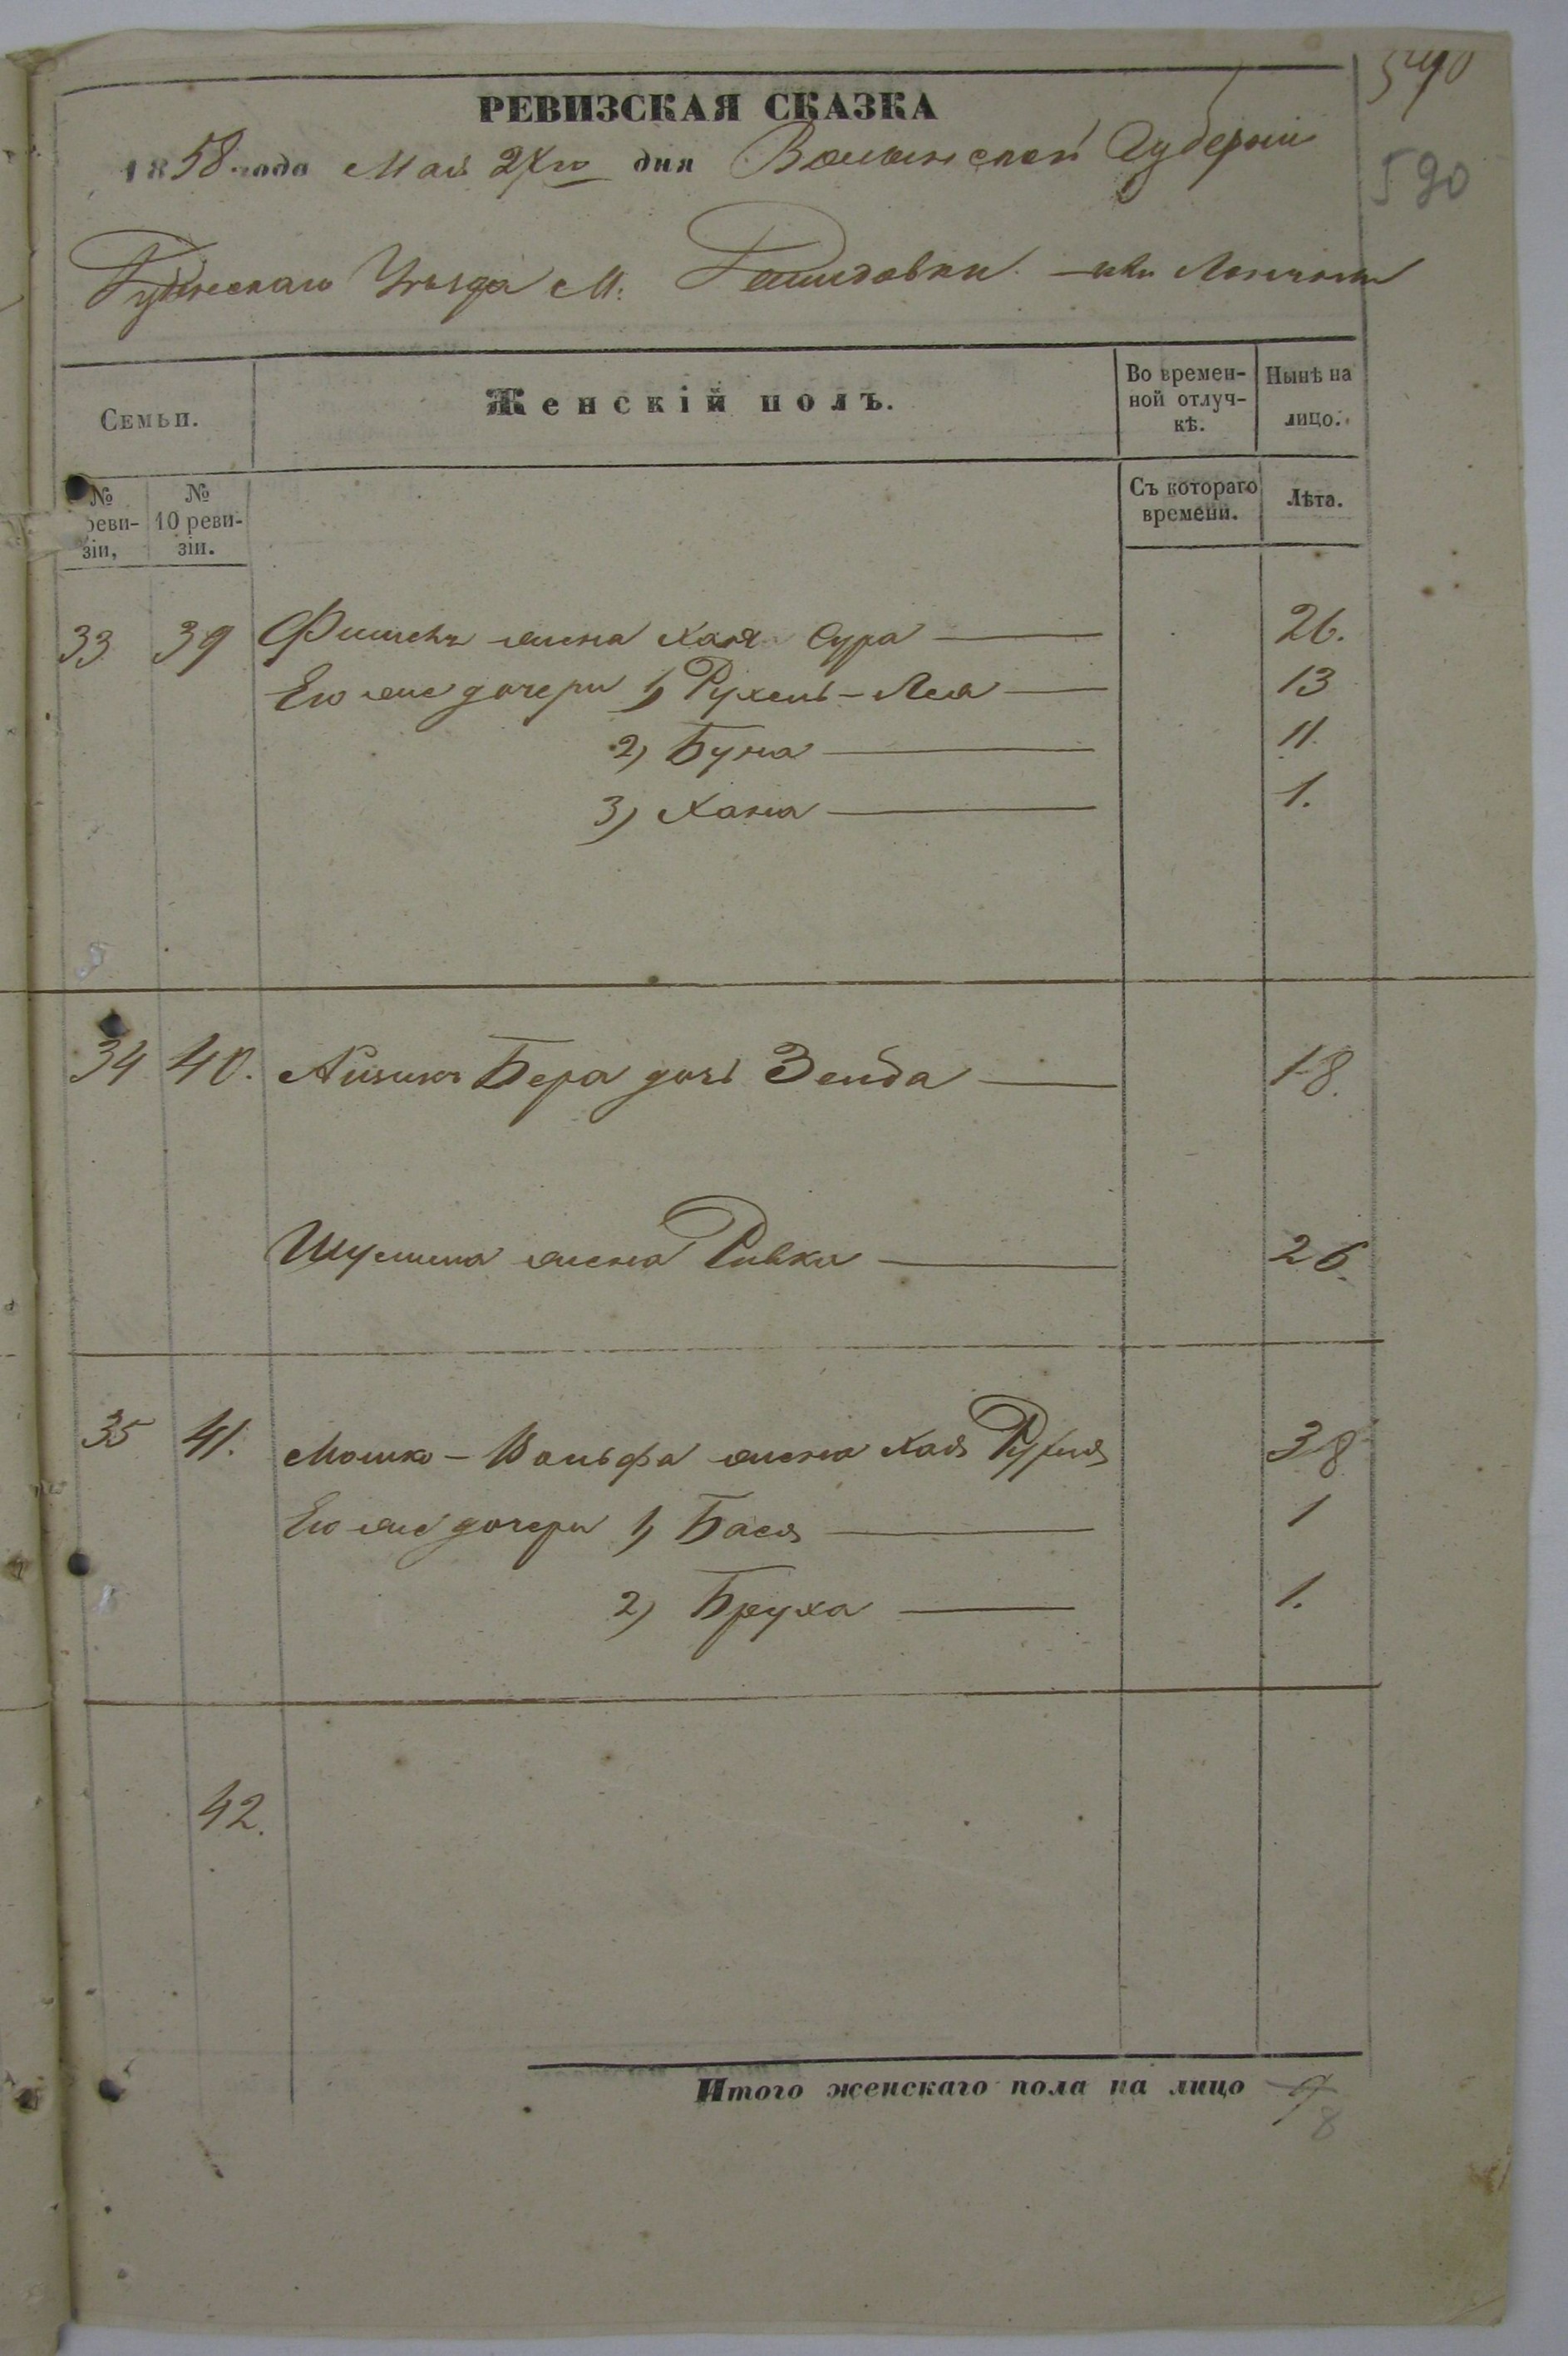 590
РЕВИЗСКАЯ СКАЗКА
1858 года Мая дня Волынской Губерніи
590
Уѣзда М.
Семьи.
Женскій полъ.
Во времен-
ной отлуч-
кѣ.
Нынѣ на
лицо.
№
реви-
зіи,
№
10 реви-
зіи.
Съ котораго
времени.
Лѣта.
33 39 жена Хая Сура 26.
Его же дочери 1) Рухель-Лея 13
2) Буня 11.
3) Хана 1.
34 40. Бера дочь Зельда 18.
жена Ривка 26.
35 41. Мошко-Вольфа жена Хая 38
Его же дочери 1) Бася 1
2) Бруха 1.
42.
Итого женскаго пола на лицо 9
8